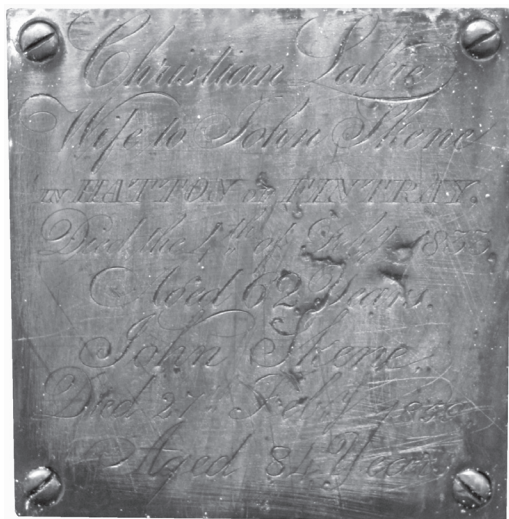 Christian
Wife to John Skene
IN HATTON of FINTRAY.
Died the 4th of 1833.
Aged 62 Years.
John Skene
Died 27 Feby
Aged 84 Years